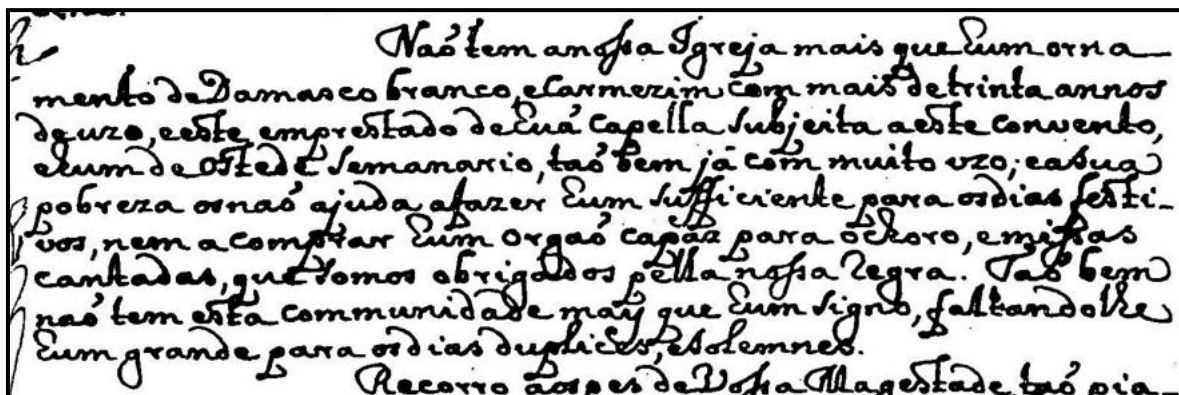 Naõ tem a nossa Igreja mais que hum orna-
mento de Damasco branco, e Carmezim com mais de trinta annos
de uzo, e este emprestado de huã Capella subjeita a este convento,
e hum de Ostede semanario, taõ bem já com muito uzo; e a sua
pobreza os naõ ajuda a fazer hum sufficiente para os dias festi-
vos, nem a comprar hum orgaõ capáz para o choro, e missas
cantadas, que somos obrigados pella nossa regra. Taõ bem
naõ tem esta communidade mays que hum signo, faltandolhe
hum grande para os dias duplices, e solemnes.
Recorro aos pes de Vossa Magestade taõ pia-